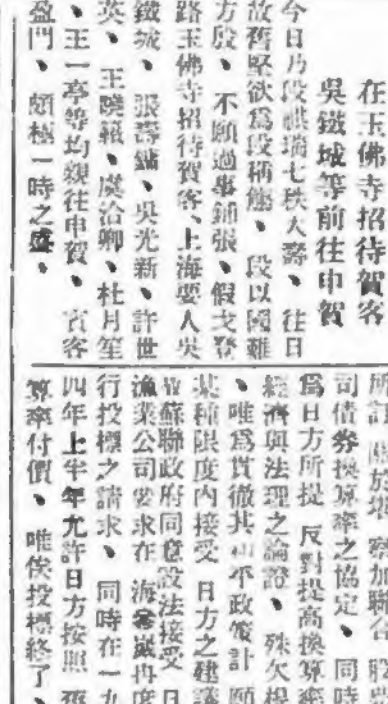 在玉佛寺招待賀客
吳鐵城等前往申賀
今日乃段祺瑞七秩大壽、往日
故舊堅欲爲段稱觴、段以國難
方殷、不願過事鋪張、假戈登
路玉佛寺招待賀客、上海要人吳
鐵城、張壽鏞、吳光新、許世
英、王曉籟、虞洽卿、杜月笙
、王一亭等均親往申賀、賓客
盈門、頗極一時之盛、
司債劵換算率之協定、同時
爲日方所提 反對提高換算率
經濟與法理之論證、殊欠根
、唯爲貫徹其和平政策計 願
某種限度內接受 日方之建議
蘇聯政府同意設法接受 日
漁業公司要求在 海參崴再度
行投標之請求、同時在一九
四年上半年允許日方按照 舊
算率付價、唯俟投標終了、